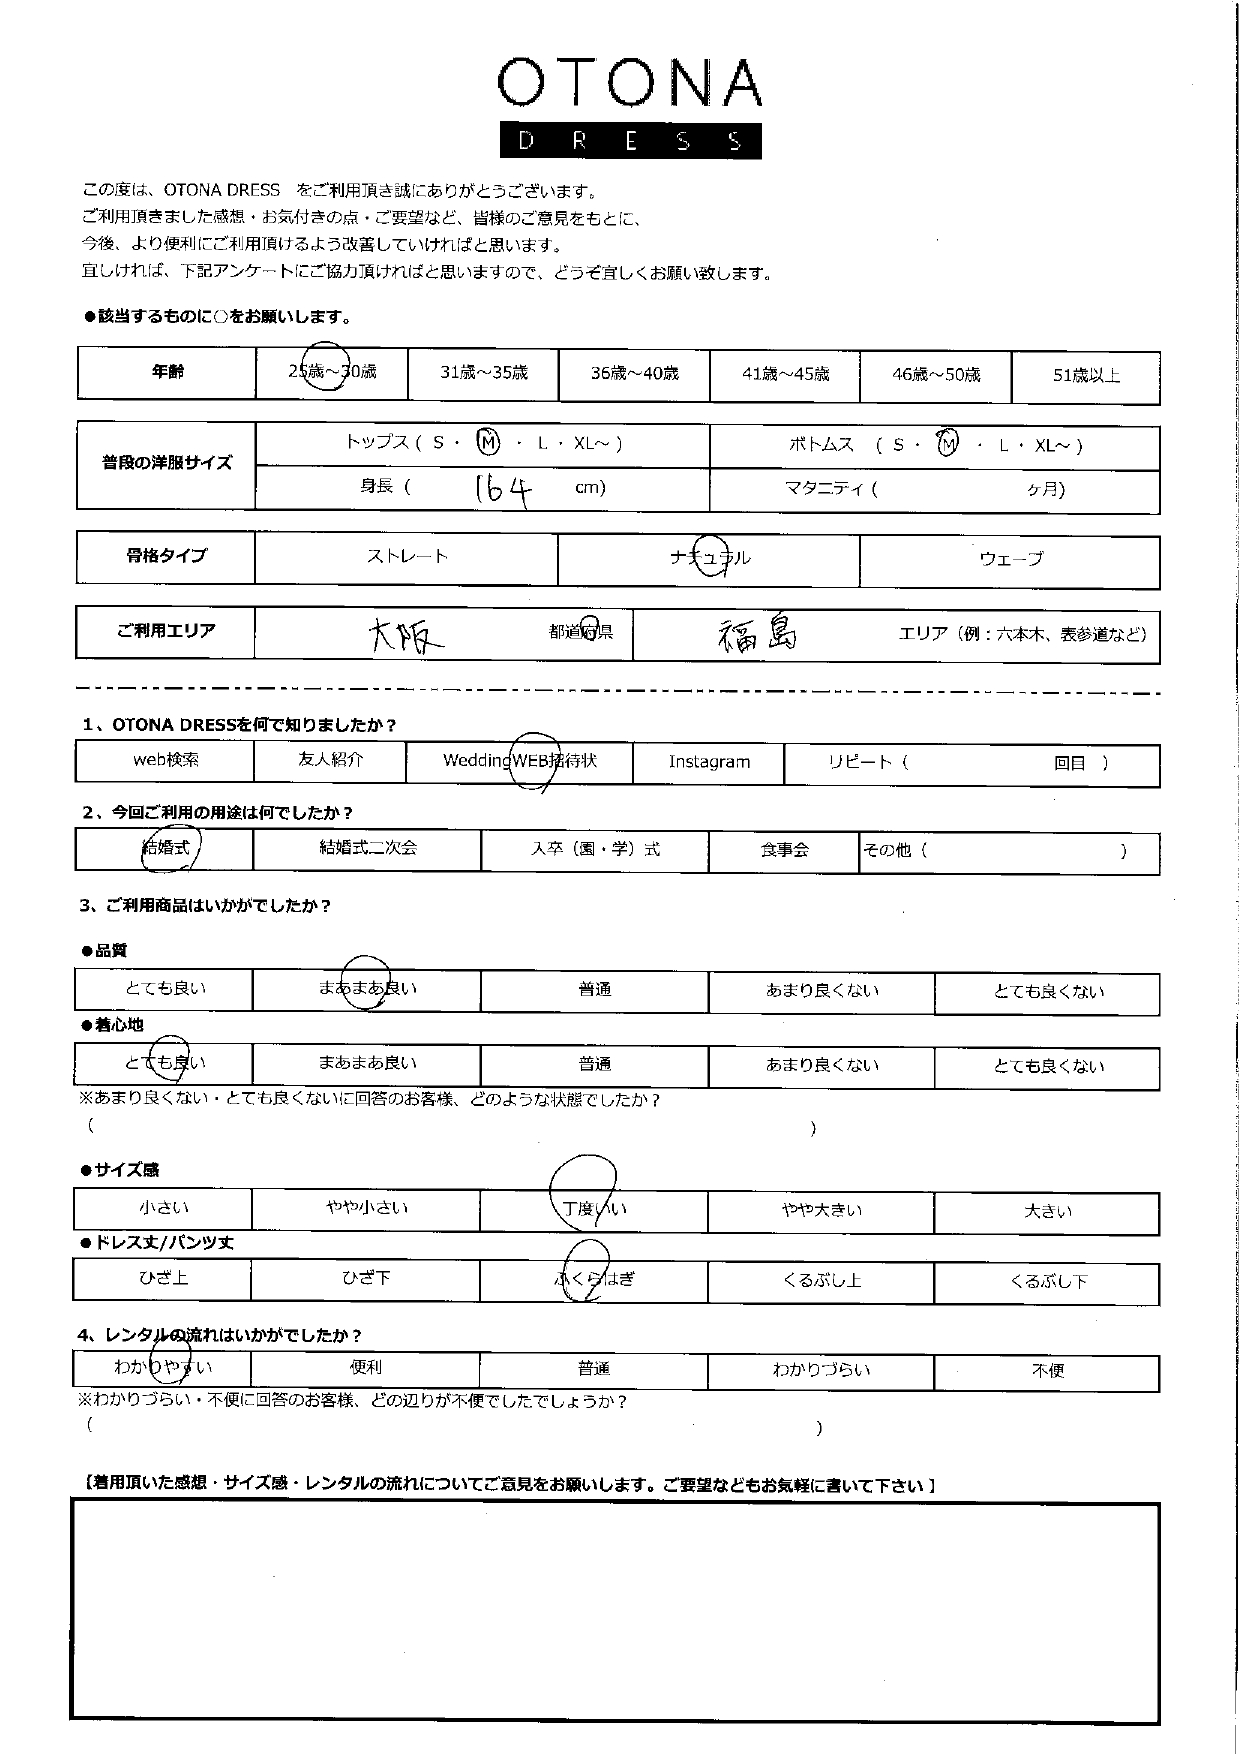 OTONA
DRESS
この度は、OTONA DRESS　をご利用頂き誠にありがとうございます。
ご利用頂きました感想・お気付きの点・ご要望など、皆様のご意見をもとに、
今後、より便利にご利用頂けるよう改善していければと思います。
宜しければ、下記アンケートにご協力頂ければと思いますので、どうぞ宜しくお願い致します。
●該当するものに○をお願いします。
年齢 25歳～30歳 31歳～35歳 36歳～40歳 41歳～45歳 46歳～50歳 51歳以上
普段の洋服サイズ トップス ( S ・ M ・ L ・ XL～ ) ボトムス ( S ・ M ・ L ・ XL～ )
身長 ( 164 cm) マタニティ ( ケ月)
骨格タイプ ストレート ナチュラル ウェーブ
ご利用エリア 大阪 都道府県 福島 エリア（例：六本木、表参道など）
1、OTONA DRESSを何で知りましたか？
web検索 友人紹介 WeddingWEB招待状 Instagram リピート（ 回目 ）
2、今回ご利用の用途は何でしたか？
結婚式 結婚式二次会 入卒（園・学）式 食事会 その他（ ）
3、ご利用商品はいかがでしたか？
●品質
とても良い まあまあ良い 普通 あまり良くない とても良くない
●着心地
とても良い まあまあ良い 普通 あまり良くない とても良くない
※あまり良くない・とても良くないに回答のお客様、どのような状態でしたか？
（ ）
●サイズ感
小さい やや小さい 丁度いい やや大きい 大きい
●ドレス丈/パンツ丈
ひざ上 ひざ下 ふくらはぎ くるぶし上 くるぶし下
4、レンタルの流れはいかがでしたか？
わかりやすい 便利 普通 わかりづらい 不便
※わかりづらい・不便に回答のお客様、どの辺りが不便でしたでしょうか？
（ ）
【着用頂いた感想・サイズ感・レンタルの流れについてご意見をお願いします。ご要望などもお気軽に書いて下さい】